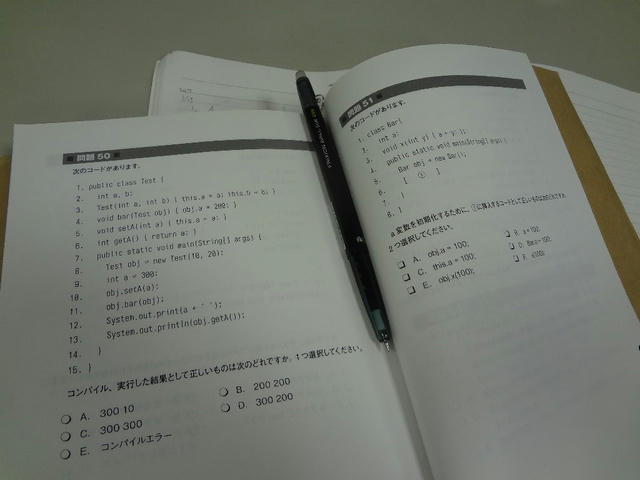 問題 50
次のコードがあります。
1. public class Test {
2. int a, b;
3. Test(int a, int b) { this.a = a; this.b = b; }
4. void bar(Test obj) { obj.a = 200; }
5. void setA(int a) { this.a = a; }
6. int getA() { return a; }
7. public static void main(String[] args) {
8. Test obj = new Test(10, 20);
9. int a = 300;
10. obj.setA(a);
11. obj.bar(obj);
12. System.out.print(a + " ");
13. System.out.println(obj.getA());
14. }
15. }
コンパイル、実行した結果として正しいものは次のどれですか。1つ選択してください。
A. 300 10
B. 200 200
C. 300 300
D. 300 200
E. コンパイルエラー
問題 51
次のコードがあります。
1. class Bar{
2. int a;
3. void x(int y) { a = y; }
4. public static void main(String[] args) {
5. Bar obj = new Bar();
6. [ ① ]
7. }
8. }
a 変数を初期化するために、①に挿入するコードとして正しいものは次のどれですか。
2つ選択してください。
A. obj.a = 100;
B. a = 100;
C. this.a = 100;
D. Bar.a = 100;
E. obj.x(100);
F. x(100);